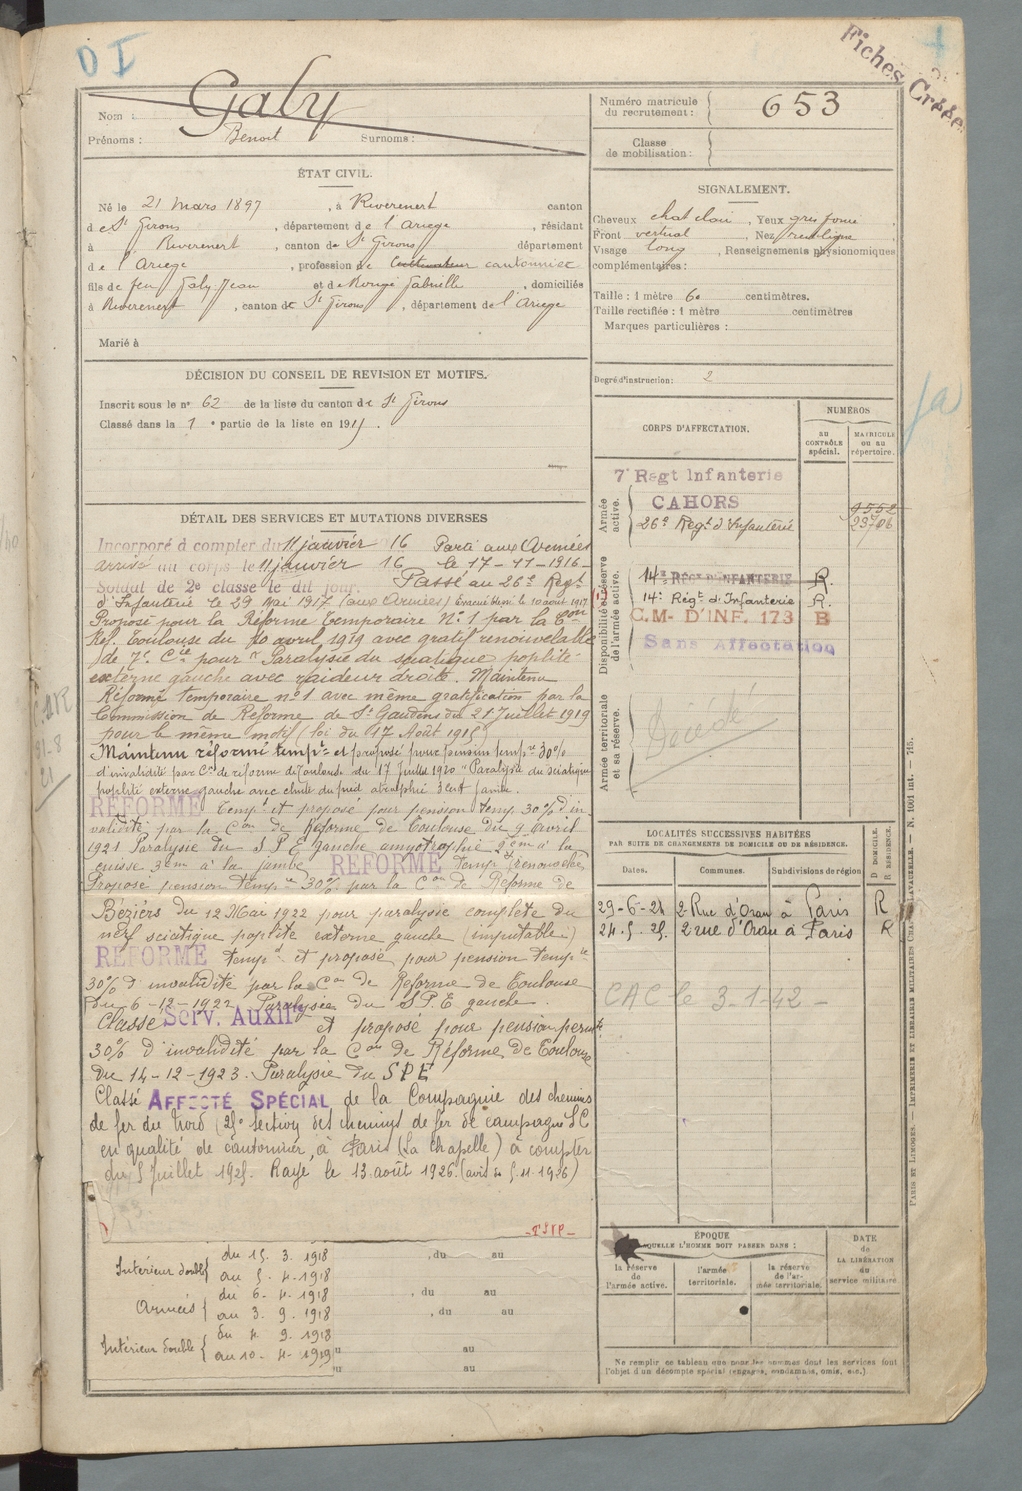 D I
Fiches Créées
Nom : Galy
Prénoms : Benoit Surnoms :
Numéro matricule du recrutement : 653
Classe de mobilisation :
ÉTAT CIVIL.
Né le 21 mars 1897, à Riverenert canton
de St Girons, département de l'Ariege, résidant
à Riverenert, canton de St Girons département
de l'Ariege, profession de Cultivateur cantonnier
fils de feu Galy Jean et de Rougé Gabrielle, domiciliés
à Riverenert, canton de St Girons, département de l'Ariege
Marié à
SIGNALEMENT.
Cheveux chat clair, Yeux gris foncé
Front vertical, Nez rectiligne
Visage long, Renseignements physionomiques
complémentaires :
Taille : 1 mètre 60 centimètres.
Taille rectifiée : 1 mètre centimètres
Marques particulières :
Degré d'instruction : 2
DÉCISION DU CONSEIL DE REVISION ET MOTIFS.
Inscrit sous le n° 62 de la liste du canton de St Girons
Classé dans la 1e partie de la liste en 1915.
DÉTAIL DES SERVICES ET MUTATIONS DIVERSES
Incorporé à compter du 11 janvier 16 Parti aux Armées
arrivé au corps le 11 janvier 16 le 17-11-1916-
Soldat de 2e classe le dit jour. Passé au 26e Regt
d'Infanterie le 29 Mai 1917 (aux Armées) Evacué blessé le 10 aout 1917
Proposé pour la Réforme temporaire N°1 par la Con
Ref. Toulouse du 10 avril 1919 avec gratif renouvelable
de 7e Cie pour "Paralysie du sciatique poplité
externe gauche avec raideur droite. Maintenu
Réformé temporaire n°1 avec même gratification par la
Commission de Réforme de St Gaudens du 21 Juillet 1919
pour le même motif (loi du 17 Août 1915)
Maintenu réformé tempre et proposé pour pension tempre 30%
d'invalidité par Con de réforme de Toulouse du 17 Juillet 1920 "Paralysie du sciatique
poplité externe gauche avec chute du pied atrophie 3 cent jambe.
RÉFORMÉ tempre et proposé pour pension temp. 30% d'in
validité par la Con de Réforme de Toulouse du 9 avril
1921 Paralysie du S P E gauche amyotrophie 2cm à la
cuisse 3cm à la jambe RÉFORMÉ tempre (renouvelé)
Proposé pension tempre 30% par la Con de Réforme de
Béziers du 12 Mai 1922 pour paralysie complète du
nerf sciatique poplité externe gauche (imputable)
RÉFORMÉ tempre et proposé pour pension tempre
30% d'invalidité par la Con de Réforme de Toulouse
du 6-12-1922 Paralysie du S.P.E gauche.
Classé Serv. Auxil. et proposé pour pension permte
30% d'invalidité par la Con de Réforme de Toulouse
du 14-12-1923. Paralysie du SPE
Classé AFFECTÉ SPÉCIAL de la Compagnie des chemins
de fer du Nord (25e section des chemins de fer de campagne) S C
en qualité de cantonnier, à Paris (La Chapelle) à compter
du 5 Juillet 1925. Rayé le 13 août 1926. (avis du 5.11.1926)
Intérieur double du 15. 3. 1918
au 5. 4. 1918
Armées du 6-4-1918
au 3. 9. 1918
Intérieur double du 4. 9. 1918
au 10-4-1919
, du au
, du au
, du au
au
au
CORPS D'AFFECTATION.
NUMÉROS
AU CONTRÔLE spécial.
MATRICULE ou au répertoire.
Armée active.
7e Regt Infanterie
CAHORS
26e Regt d'Infanterie
9552
23706
Disponibilité et réserve de l'armée active.
14e RÉGt D'INFANTERIE R.
14e Régt d'Infanterie R.
C.M- D'INF. 173 B
Sans Affectation
Armée territoriale et sa réserve.
Décédé
LOCALITÉS SUCCESSIVES HABITÉES
PAR SUITE DE CHANGEMENTS DE DOMICILE OU DE RÉSIDENCE.
Dates. Communes. Subdivisions de région D DOMICILE. R RÉSIDENCE.
29-6-24 2 Rue d'Oran à Paris R
24.5.25. 2 rue d'Oran à Paris R
CAC le 3-1-42-
ÉPOQUE
À LAQUELLE L'HOMME DOIT PASSER DANS :
la réserve de l'armée active.
l'armée territoriale.
la réserve de l'armée territoriale.
DATE de LA LIBÉRATION du service militaire.
Ne remplir ce tableau que pour les hommes dont les services font
l'objet d'un décompte spécial (engagés, condamnés, omis, etc.)
PARIS ET LIMOGES. — IMPRIMERIE ET LIBRAIRIE MILITAIRES CHARLES-LAVAUZELLE. — N. 1001 int. — 715.